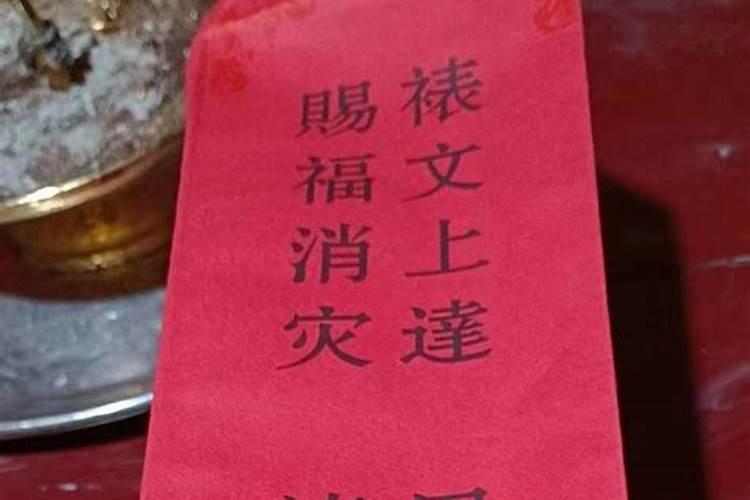 裱文上達
賜福消灾